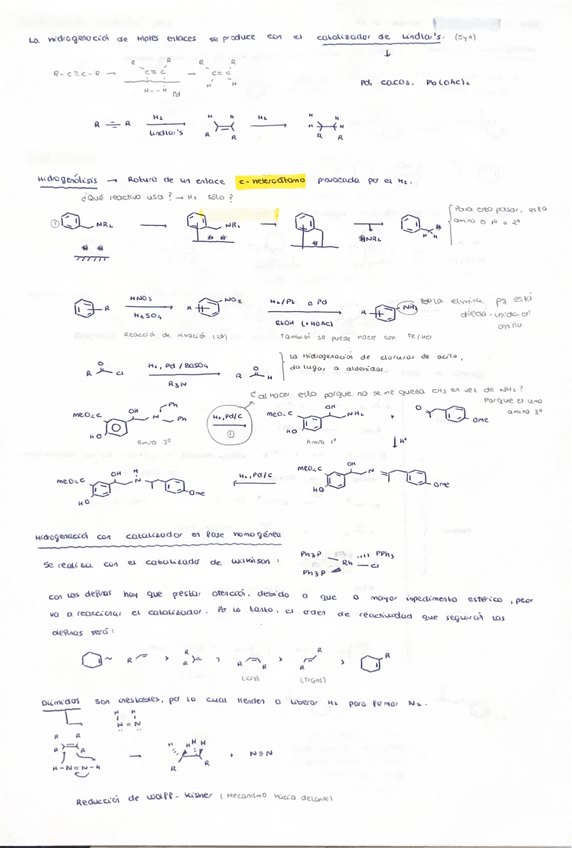 La hidrogenación de triples enlaces se produce con el catalizador de Lindlar's. (Syn)
R-C≡C-R → R R C=C H--H Pd → R R C=C H H
Pd, CaCO3, Pb(OAc)2
R ≡ R H2 Lindlar's H H R R H2 H H H H R R
Hidrogenólisis → Rotura de un enlace C-heteroátomo provocada por el H2.
¿Qué reactivo usa? → H2 sólo?
① NR2 → NR2 → HNR2
Para esto pasar, esta
amina es 1º o 2º
R HNO3 H2SO4 R NO2 H2/Pt o Pd EtOH (+HOAc) R NH2
elimina pq está
amino
Reacción de nitración
También se puede hacer con Fe/HCl
R O Cl H2, Pd/BaSO4 R3N R O H
La hidrogenación de cloruros de acilo,
da lugar a aldehídos.
al hacer esto porque no se me queda CH3 en vez de NH2?
Porque es una
amina 3º
MeO2C HO OH N Ph Ph H2, Pd/C ① MeO2C HO OH NH2 + O OMe
amina 3º
amina 1º
H+
MeO2C HO OH H N OMe H2, Pd/C MeO2C HO OH N OMe
Hidrogenación con catalizador en fase homogénea
Se realiza con el catalizador de Wilkinson:
Ph3P PPh3 Rh Ph3P Cl
con las olefinas hay que prestar atención, debido a que a mayor impedimento estérico, peor
va a reaccionar el catalizador. Por lo tanto, el orden de reactividad que seguirán las
olefinas será:
~ R > R > R R > R R > R
(cis) (trans)
Diimidas son inestables, por lo cual tienden a liberar H2 para formar N2.
H H N=N
R R R R H-N=N-H → H H R R + N≡N
Reducción de Wolff-Kisner (Mecanismo hacia delante)